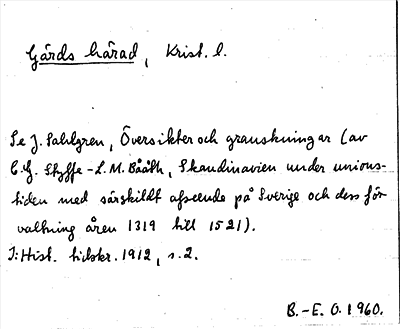 Gärds härad, Krist. l.
Se J. Sahlgren, Översikter och granskningar (av
C.G. Styffe - L.M. Bååth, Skandinavien under unions-
tiden med särskildt afseende på Sverige och dess för-
valtning åren 1319 till 1521).
I: Hist. tidskr. 1912, s. 2.
B.-E. O. 1960.